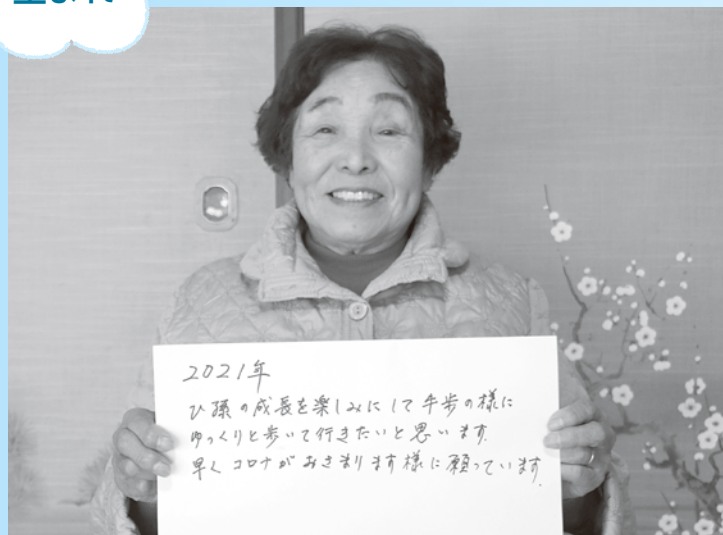 生まれ
2021年
ひ孫の成長を楽しみにして牛歩の様に
ゆっくりと歩いて行きたいと思います。
早くコロナがおさまります様に願っています。